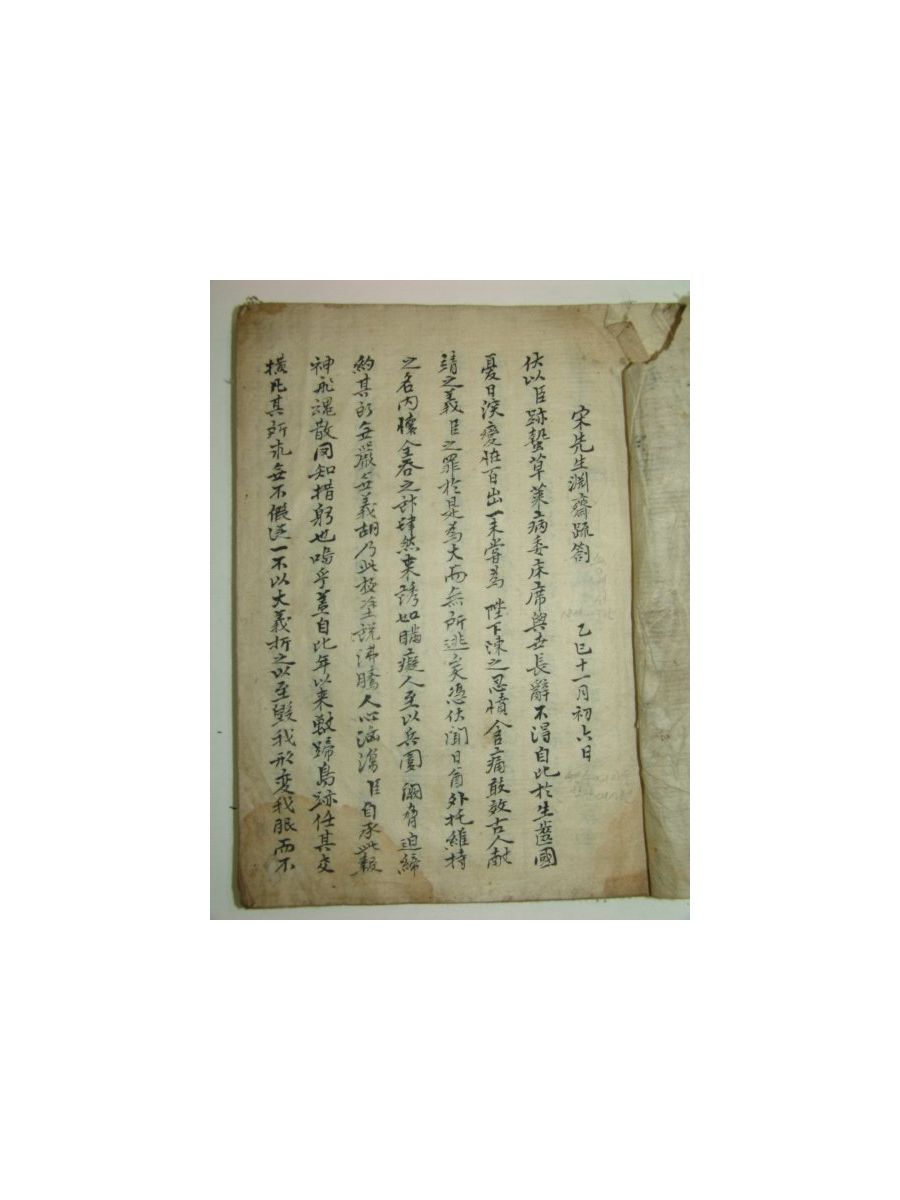 宋先生淵齋疏劄 乙巳十一月初六日
伏以臣跡蟄草萊病委床席與世長辭不得自比於生齒國
憂日深變怪百出一未嘗爲 陛下陳之忍憤含痛敢效古人獻
靖之義臣之罪於是爲大而無所逃矣憑伏聞日酋外托維持
之名內懷全吞之計肆然來誘如瞞癡人至以兵圍 闕脅迫締
約其為無嚴無義胡乃此極塗說沸騰人心 臣自承此報
神飛魂散罔知措躬也嗚乎蓋自比年以來獸蹄鳥跡任其交
橫凡其所求無不假從一不以大義折之以至毀我形變我服而不